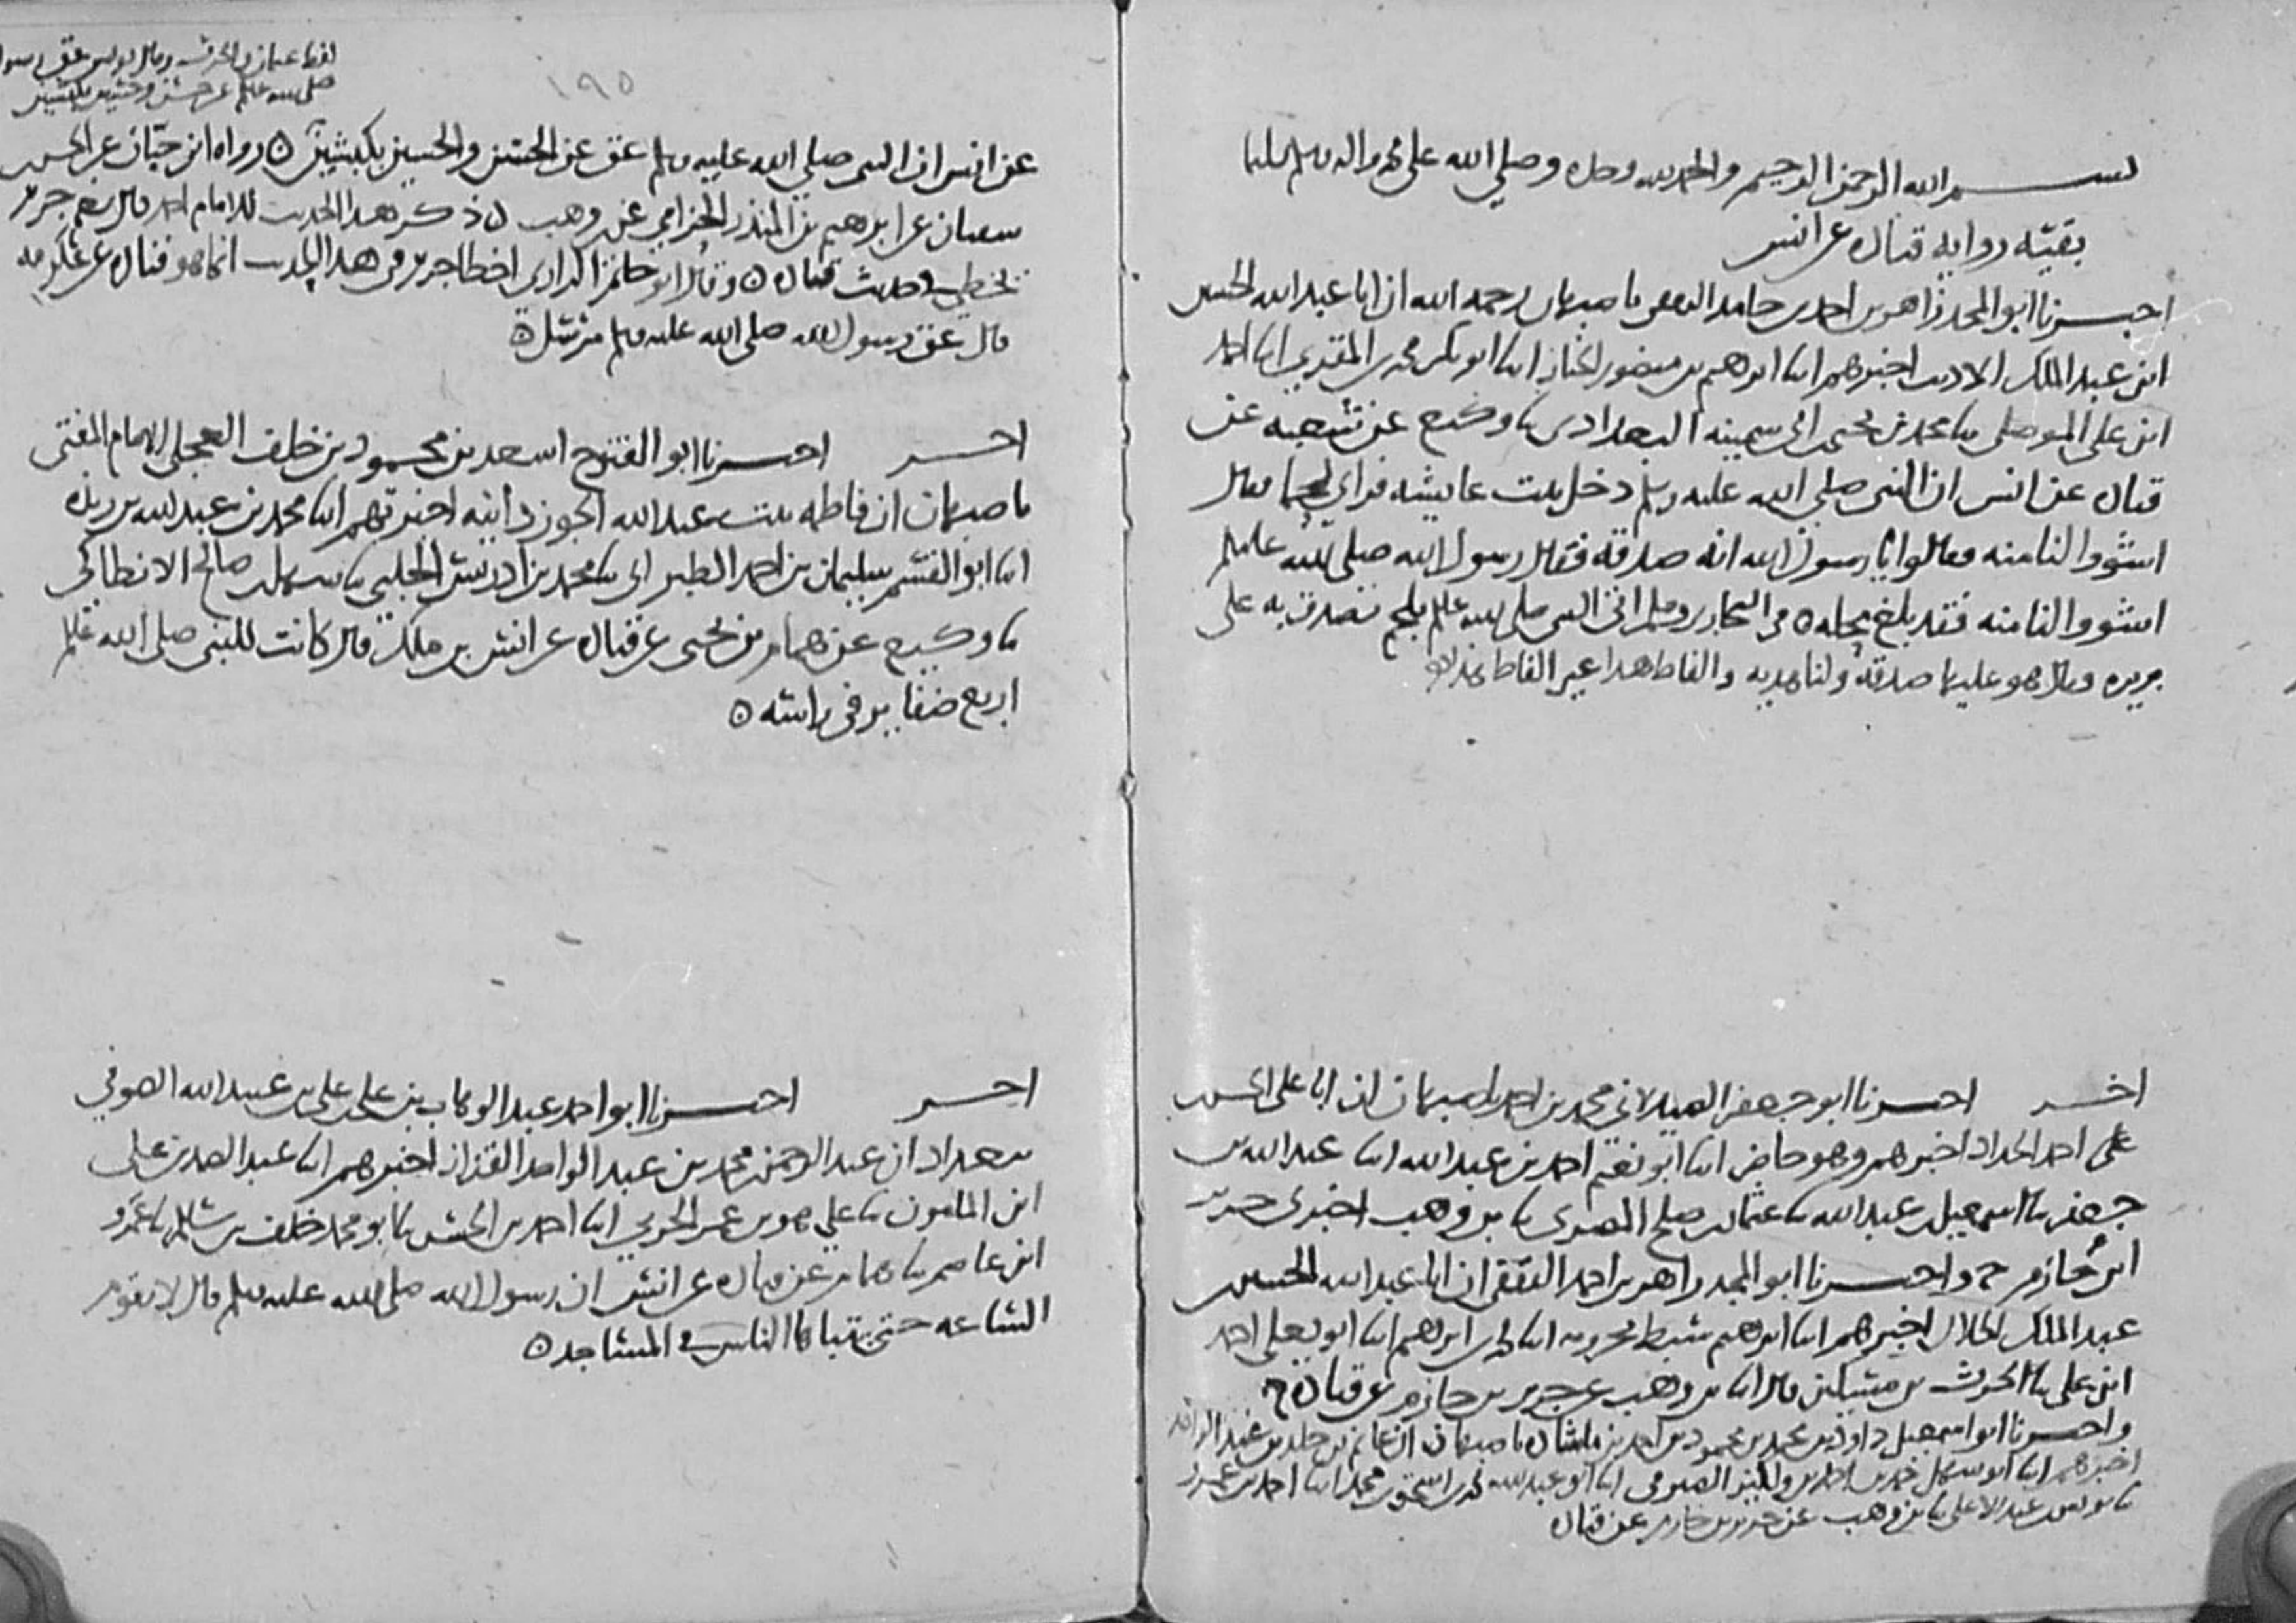 بسم الله الرحمن الرحيم والحمد لله وحده وصلى الله على محمد واله وسلم تسليما
بقية رواية قتاده عن انس
اخبرنا ابو المجد زاهر بن احمد بن حامد الثقفي باصبهان رحمه الله ان ابا عبد الله الحسين
ابن عبد الملك الاديب اخبرهم ابنا ابراهيم بن منصور الخباز ابنا ابو بكر محمد بن المقري ابنا احمد
ابن علي الموصلي ثنا محمد بن يحيى بن ابي سمينه البغدادي ثنا وكيع عن شعبه عن
قتاده عن انس ان النبي صلى الله عليه وسلم دخل بيت عايشه فراى لحما فقال
اشووا لنا منه فقالوا يا رسول الله انه صدقة فقال رسول الله صلى الله عليه وسلم
اشووا لنا منه فقد بلغ محله ٥ في البخاري ومسلم اتي النبي صلى الله عليه وسلم بلحم تصدق به على
بريره وقال هو عليها صدقة ولنا هديه والفاظ هذا غير الفاظ
اخبر اخبرنا ابو جعفر الصيدلاني محمد بن احمد باصبهان ان ابا علي الحسن بن
احمد الحداد اخبرهم وهو حاضر ابنا ابو نعيم احمد بن عبد الله ابنا عبد الله بن
جعفر ثنا اسمعيل بن عبد الله ثنا عثمان بن صلح المصري ثنا بن وهب اخبرني جرير
ابن حازم ح واخبرنا ابو المجد زاهر بن احمد الثقفي ان ابا عبد الله الحسين بن
عبد الملك الخلال اخبرهم ابنا ابراهيم سبط بحرويه ابنا محمد بن ابراهيم ابنا ابو يعلى احمد
ابن علي ثنا الحرث بن مسكين قال ابنا بن وهب عن جرير بن حازم عن قتاده ح
واخبرنا ابو اسمعيل داود بن محمد بن محمود بن احمد بن ماشاده باصبهان ان غانم بن خلد بن عبد الواحد
اخبرهم ابنا ابو سهل حمد بن احمد بن ولكيز الصوفي ابنا ابو عبد الله محمد بن اسحق بن محمد ابنا احمد بن عمرو
ثنا يونس بن عبد الاعلى ثنا بن وهب عن جرير بن حازم عن قتاده
لفظ عثمان والحرث وقال يونس عق رسول الله
صلى الله عليه وسلم عن حسن وحسين بكبشين
١٩٥
عن انس ان النبي صلى الله عليه وسلم عق عن الحسن والحسين بكبشين ٥ رواه ابن حبان عن الحسن بن
سفيان عن ابرهيم بن المنذر الحزامي عن بن وهب ٥ ذكر هذا الحديث للامام احمد قال بعض جرير
يخطي في حديث قتاده ٥ وقال ابو حاتم الرازي اخطا جرير في هذا الحديث انما هو قتاده عن عكرمه
قال عق رسول الله صلى الله عليه وسلم مرسل ٥
اخبر اخبرنا ابو الفتوح اسعد بن محمود بن خلف العجلي الامام المفتي
باصبهان ان فاطمه بنت عبد الله الجوزدانيه اخبرتهم ابنا محمد بن عبد الله بن ريذه
ابنا ابو القسم سليمان بن احمد الطبراني ثنا محمد بن ادريس الحلبي ثنا سهل بن صالح الانطاكي
ثنا وكيع عن همام بن يحيى عن قتاده عن انس بن ملك قال كانت للنبي صلى الله عليه وسلم
اربع ضفاير في راسه ٥
اخبر اخبرنا ابو احمد عبد الوهاب بن علي بن علي بن عبيد الله الصوفي
ببغداد ان عبد الرحمن بن محمد بن عبد الواحد القزاز اخبرهم ابنا عبد الصمد بن علي
ابن المامون ثنا علي هو بن عمر الحربي ابنا احمد بن الحسن ثنا ابو محمد خلف بن سالم ثنا عمرو
ابن عاصم ثنا همام عن قتاده عن انس ان رسول الله صلى الله عليه وسلم قال لا تقوم
الساعه حتى يتباها الناس في المساجد ٥